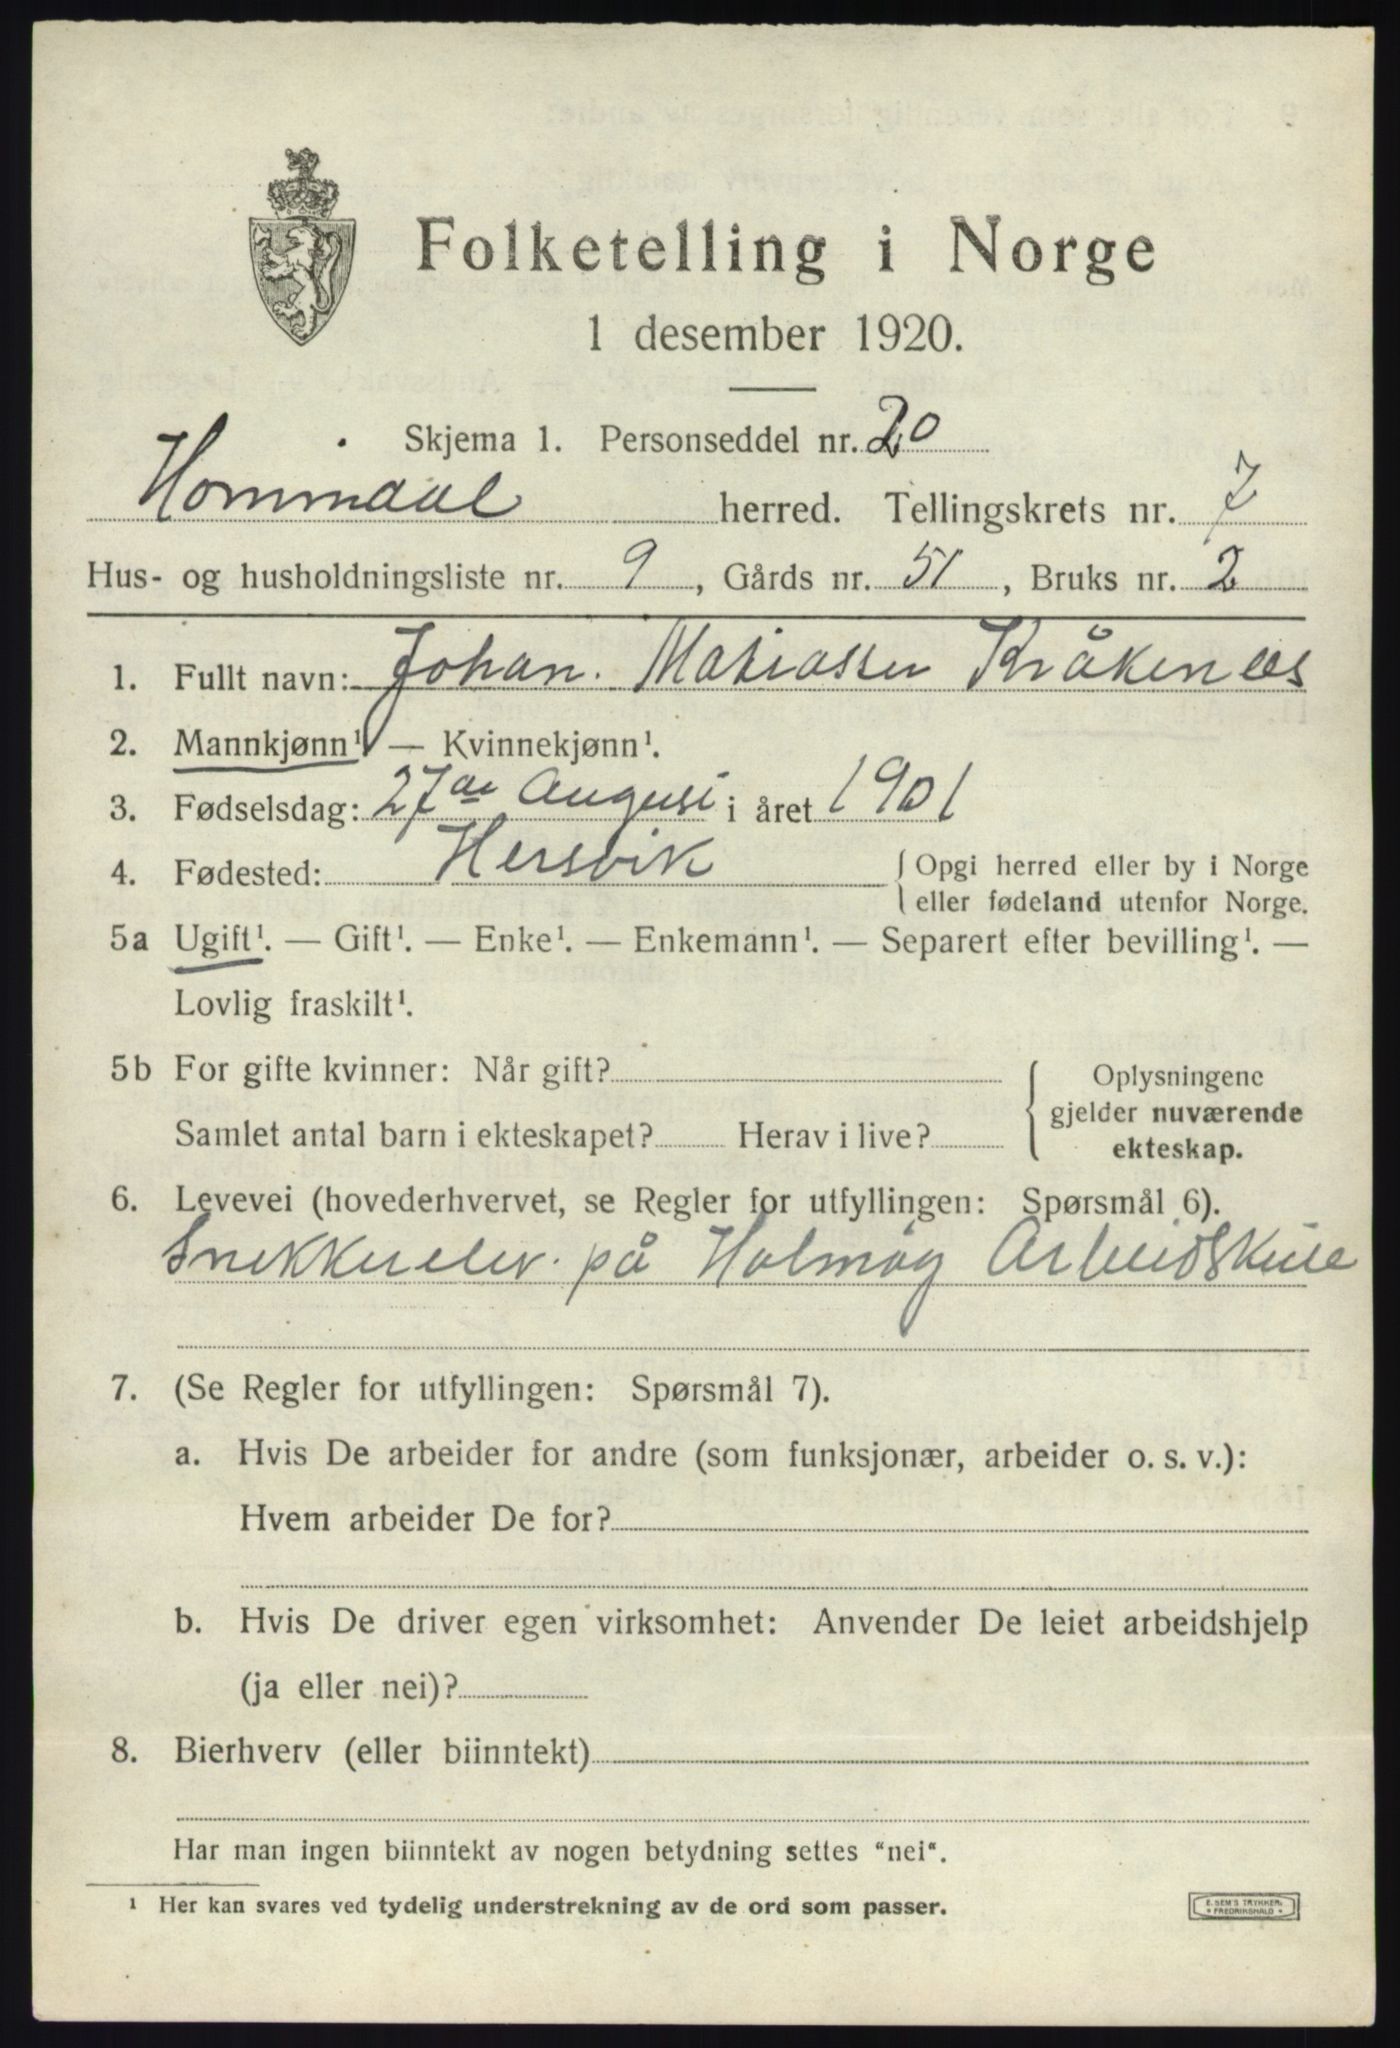 Folketelling i Norge
1 desember 1920.
Skjema 1. Personseddel nr. 20
Hornindal herred. Tellingskrets nr. 7
Hus- og husholdningsliste nr. 9, Gårds nr. 51, Bruks nr. 2
1. Fullt navn: Johan. Matiassen Kråkenæs
2. Mannkjønn¹ — Kvinnekjønn¹.
3. Fødselsdag: 27de August i året 1901
4. Fødested: Hersvik { Opgi herred eller by i Norge
eller fødeland utenfor Norge.
5a Ugift¹. — Gift¹. — Enke¹. — Enkemann¹. — Separert efter bevilling¹. —
Lovlig fraskilt¹.
5b For gifte kvinner: Når gift?
Samlet antal barn i ekteskapet? Herav i live?
{ Oplysningene
gjelder nuværende
ekteskap.
6. Levevei (hovederhvervet, se Regler for utfyllingen: Spørsmål 6).
Snekkerelev. på Holmøy Arbeidskule
7. (Se Regler for utfyllingen: Spørsmål 7).
a. Hvis De arbeider for andre (som funksjonær, arbeider o. s. v.):
Hvem arbeider De for?
b. Hvis De driver egen virksomhet: Anvender De leiet arbeidshjelp
(ja eller nei)?
8. Bierhverv (eller biinntekt)
Har man ingen biinntekt av nogen betydning settes "nei".
¹ Her kan svares ved tydelig understrekning av de ord som passer.
E. SEM'S TRYKKERI
FREDRIKSHALD